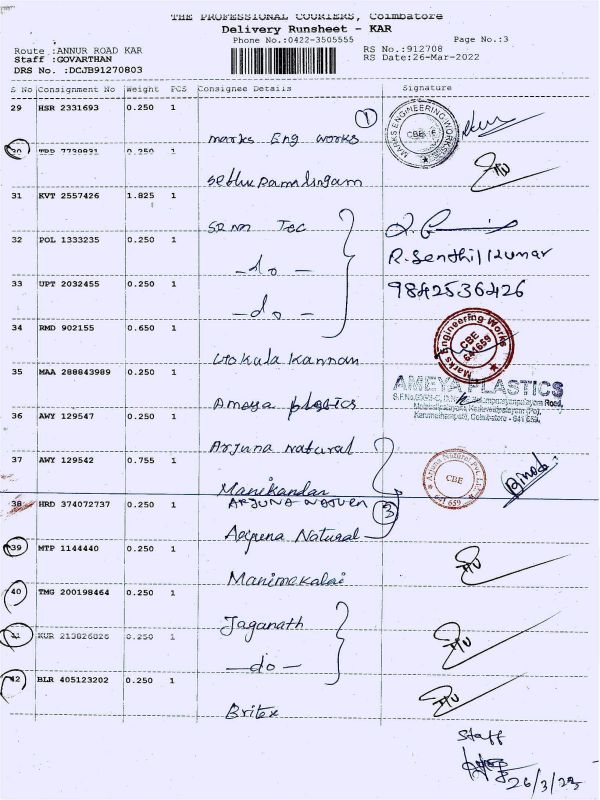 THE PROFESSIONAL COURIERS, Coimbatore
Delivery Runsheet - KAR
Phone No.:0422-3505555
Page No.:3
Route :ANNUR ROAD KAR
RS No.:912708
Staff :GOVARTHAN
RS Date:26-Mar-2022
DRS No. :DCJB91270803
S No Consignment No Weight PCS Consignee Details Signature
29 HSR 2331693 0.250 1
1
marks Eng works
MARKS ENGINEERING WORKS
30 TRP 7739831 0.250 1
sethu ramalingam
31 KVT 2557426 1.825 1
SRNN Tec
32 POL 1333235 0.250 1
- do -
R. Senthil Kumar
33 UPT 2032455 0.250 1
9842536426
- do -
34 RMD 902155 0.650 1
Marks Engineering Works
CBE
641659
Gokula Kannan
35 MAA 288843989 0.250 1
AMEYA PLASTICS
Ameya plastics
Coimbatore - 641 659.
36 AWY 129547 0.250 1
Arjuna natural
37 AWY 129542 0.755 1
Arjuna Natural Pvt. Ltd.
CBE
641 659
Manikandan
38 HRD 374072737 0.250 1
ARJUNA NATUREN
3
Arjuna Natural
39 MTP 1144440 0.250 1
Manimekalai
40 TMG 200198464 0.250 1
Jaganath
41 KUR 213826826 0.250 1
- do -
42 BLR 405123202 0.250 1
Britex
Staff
26/3/22